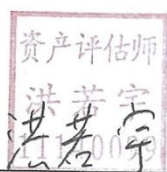 资产评估师
洪若宇
洪若宇